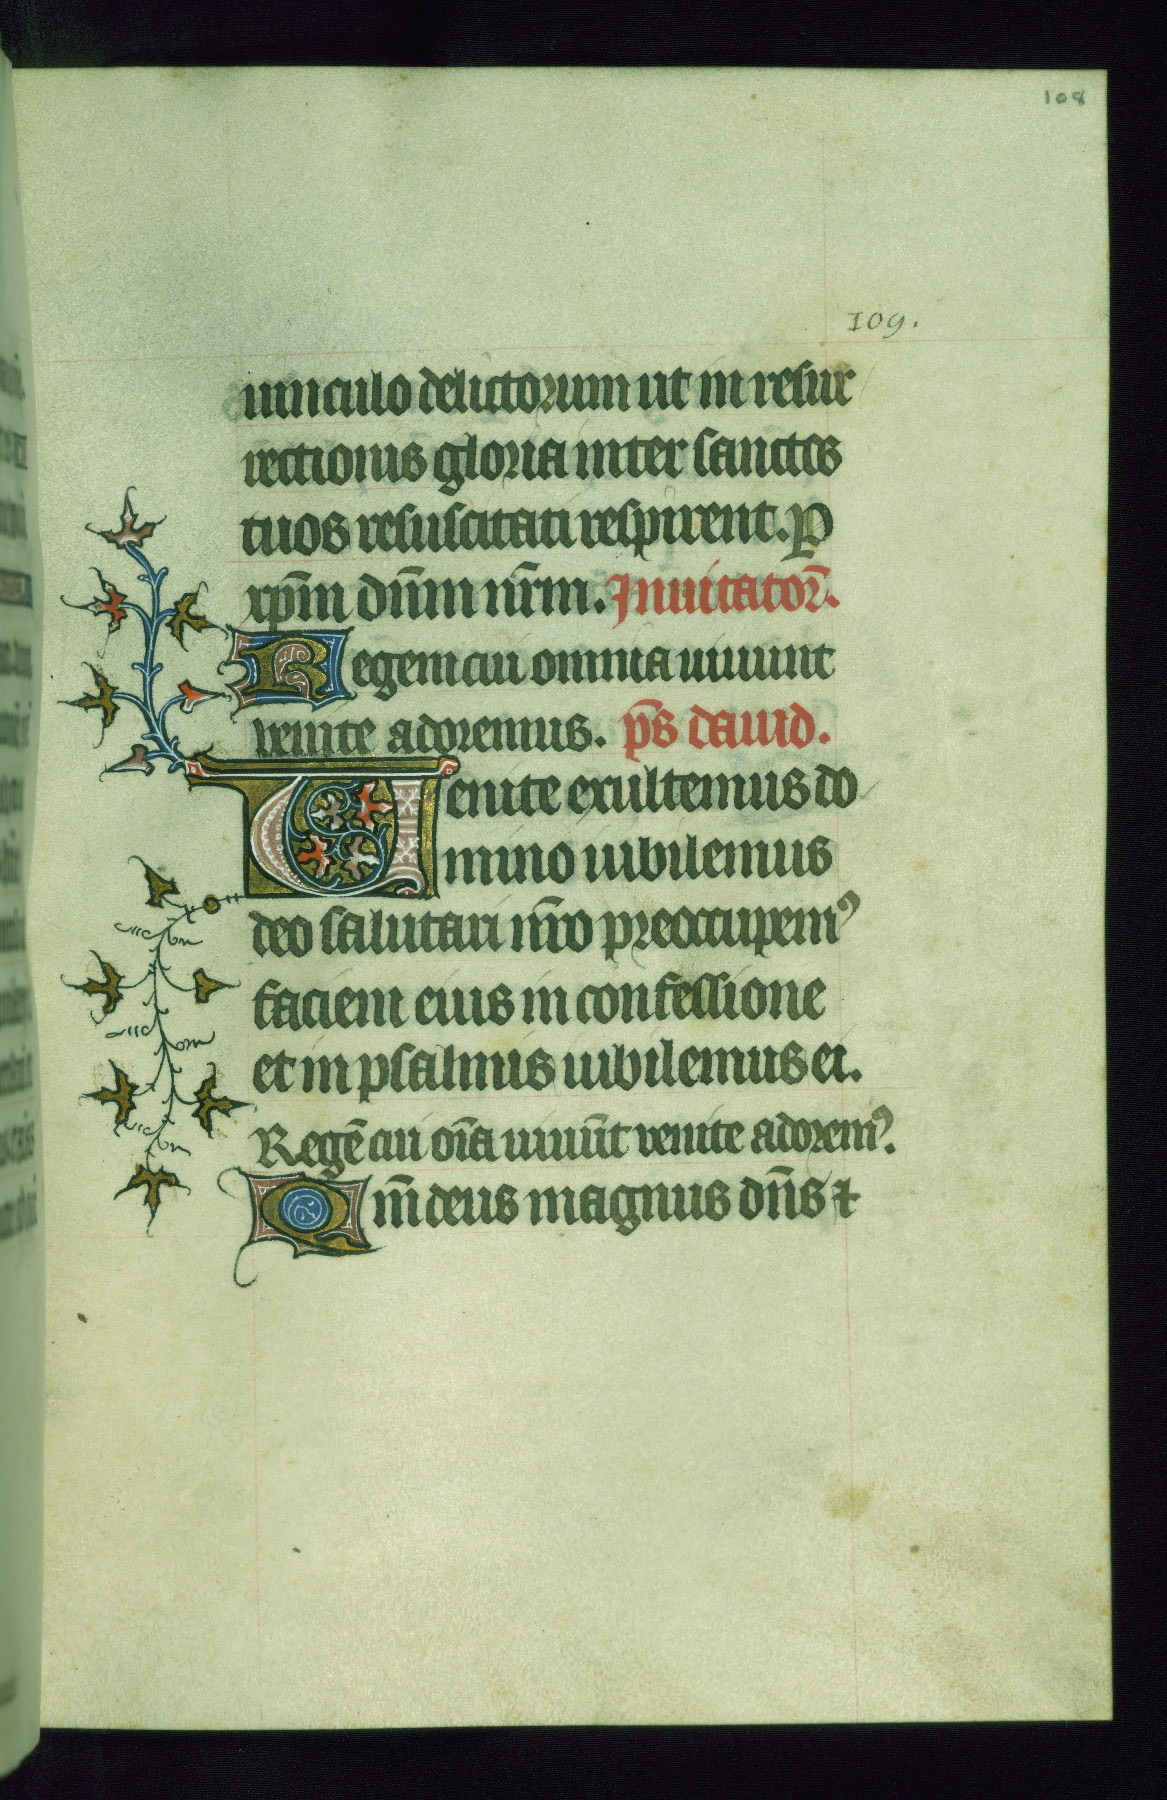 108
109.
uinculo delictorum ut in resur
rectionis gloria inter sanctos
tuos resuscitati respirent. P̲
xp̄m dn̄m nr̄m. Inuitator̄.
Regem cui omnia uiuunt
venite adoremus. ps̄ dauid.
Uenite exultemus do
mino iubilemus
deo salutari nr̄o preoccupemꝰ
faciem eius in confessione
et in psalmis iubilemus ei.
Regē cui oīa uiuūt venite adoremꝰ.
Qm̄ deus magnus dn̄s ⁊